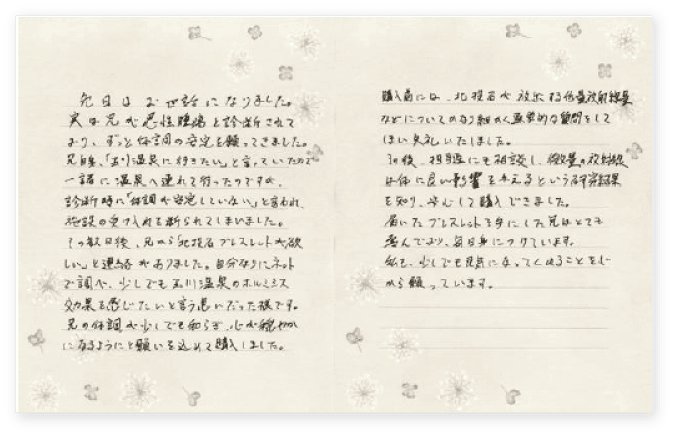 先日はお世話になりました。
実は兄が悪性腫瘍と診断されて
おり、ずっと体調の安定を願ってきました。
兄自身、「玉川温泉に行きたい」と言っていたので
一緒に温泉へ連れて行ったのですが、
診断時に「体調が安定していない」と言われ、
施設の受け入れを断られてしまいました。
その数日後、兄から「北投石ブレスレットが欲
しい」と連絡がありました。自分なりにネット
で調べ、少しでも玉川温泉のホルミシス
効果を感じたいと言う思いだった様です。
兄の体調が少しでも和らぎ、心が穏やか
になるようにと願いを込めて購入しました。
購入前には、北投石が放出する低量放射線量
などについてのかなり細かく医学的な質問をして
しまい失礼いたしました。
その後、担当医にも相談し、微量の放射線
は体に良い影響を与えるという研究結果
を知り、安心して購入できました。
届いたブレスレットを手にした兄はとても
喜んでおり、毎日身につけています。
私も、少しでも元気になってくれることを心
から願っています。